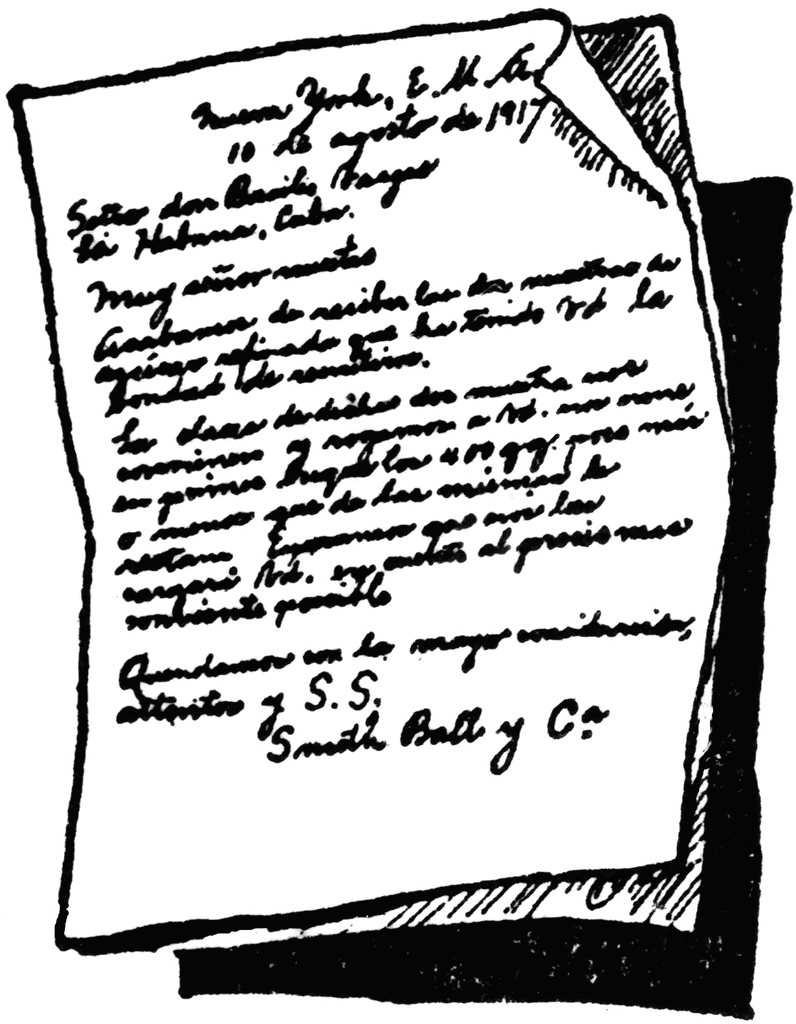 Nueva York, E. U. A.
10 de agosto de 1917
Señor don Basilio Vargas
La Habana, Cuba.
Muy señor nuestro
Acabamos de recibir las dos muestras de
azúcar refinado que ha tenido Vd la
bondad de remitirnos.
La clase de dichas dos muestra nos
conviene y rogamos a Vd. nos
en primer lugar los 400 qq. poco más
o menos que de las mismas le
restan. Esperamos que nos los
cargará Vd. en cuenta al precio mas
conviente posible
Quendamos con la mayor consideración,
attentos y S. S.
Smith Ball y Cª